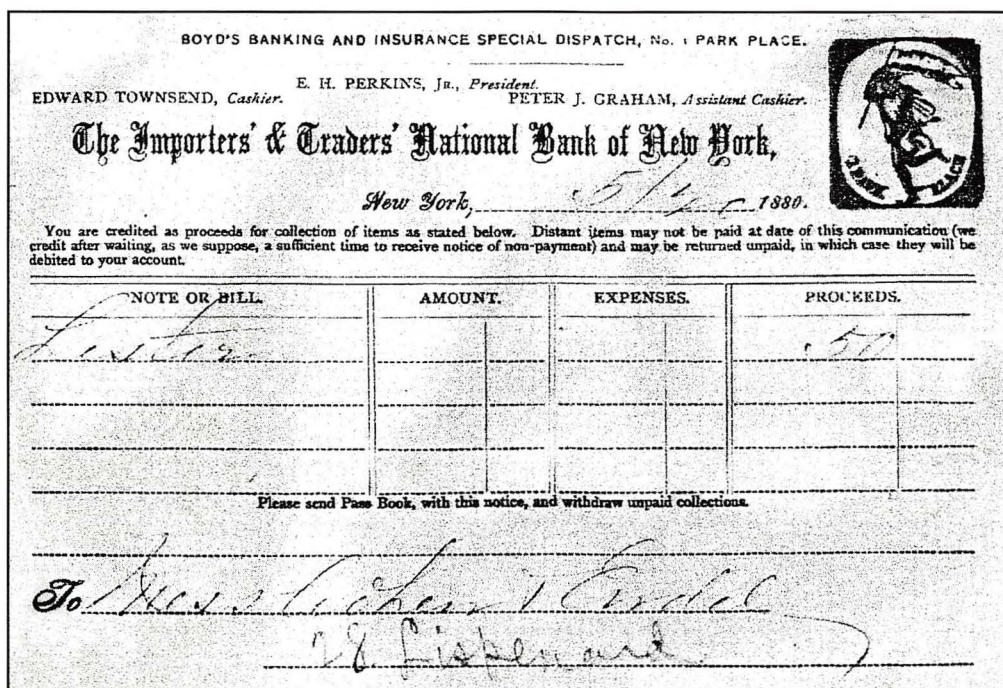 BOYD'S BANKING AND INSURANCE SPECIAL DISPATCH, No. 1 PARK PLACE.
E. H. PERKINS, JR., President.
EDWARD TOWNSEND, Cashier. PETER J. GRAHAM, Assistant Cashier.
The Importers' & Traders' National Bank of New York,
1 PARK PLACE
New York, 1880.
You are credited as proceeds for collection of items as stated below. Distant items may not be paid at date of this communication (we
credit after waiting, as we suppose, a sufficient time to receive notice of non-payment) and may be returned unpaid, in which case they will be
debited to your account.
NOTE OR BILL. AMOUNT. EXPENSES. PROCEEDS.
50
Please send Pass Book, with this notice, and withdraw unpaid collections.
To Mess
28 Lispenard